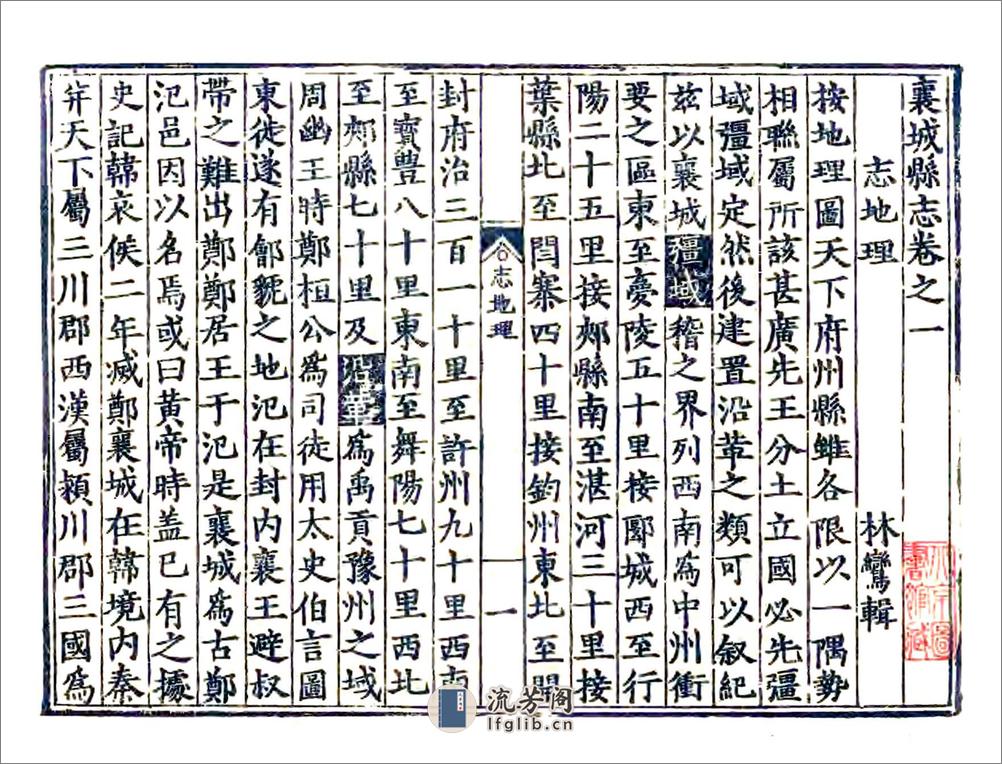 襄城縣志卷之一
志地理 林鸞輯
按地理圖天下府州縣雖各限以一隅勢
相聯屬所該甚廣先王分土立國必先彊
域彊域定然後建置沿革之類可以叙紀
玆以襄城彊域稽之界列西南為中州衝
要之區東至臺陵五十里接郾城西至行
陽二十五里接郟縣南至湛河三十里接
葉縣北至閆寨四十里接鈞州東北至開
志地理 一
封府治三百一十里至許州九十里西南
至寳豐八十里東南至舞陽七十里西北
至郟縣七十里及沿革為禹貢豫州之域
周幽王時鄭桓公為司徒用太史伯言圖
東徙遂有鄶虢之地氾在封内襄王避叔
帶之難出鄭鄭居王于氾是襄城為古鄭
氾邑因以名焉或曰黄帝時盖已有之據
史記韓哀侯二年滅鄭襄城在韓境内秦
并天下屬三川郡西漢屬潁川郡三國為
北京圖
書館藏
流芳阁
lfglib.cn